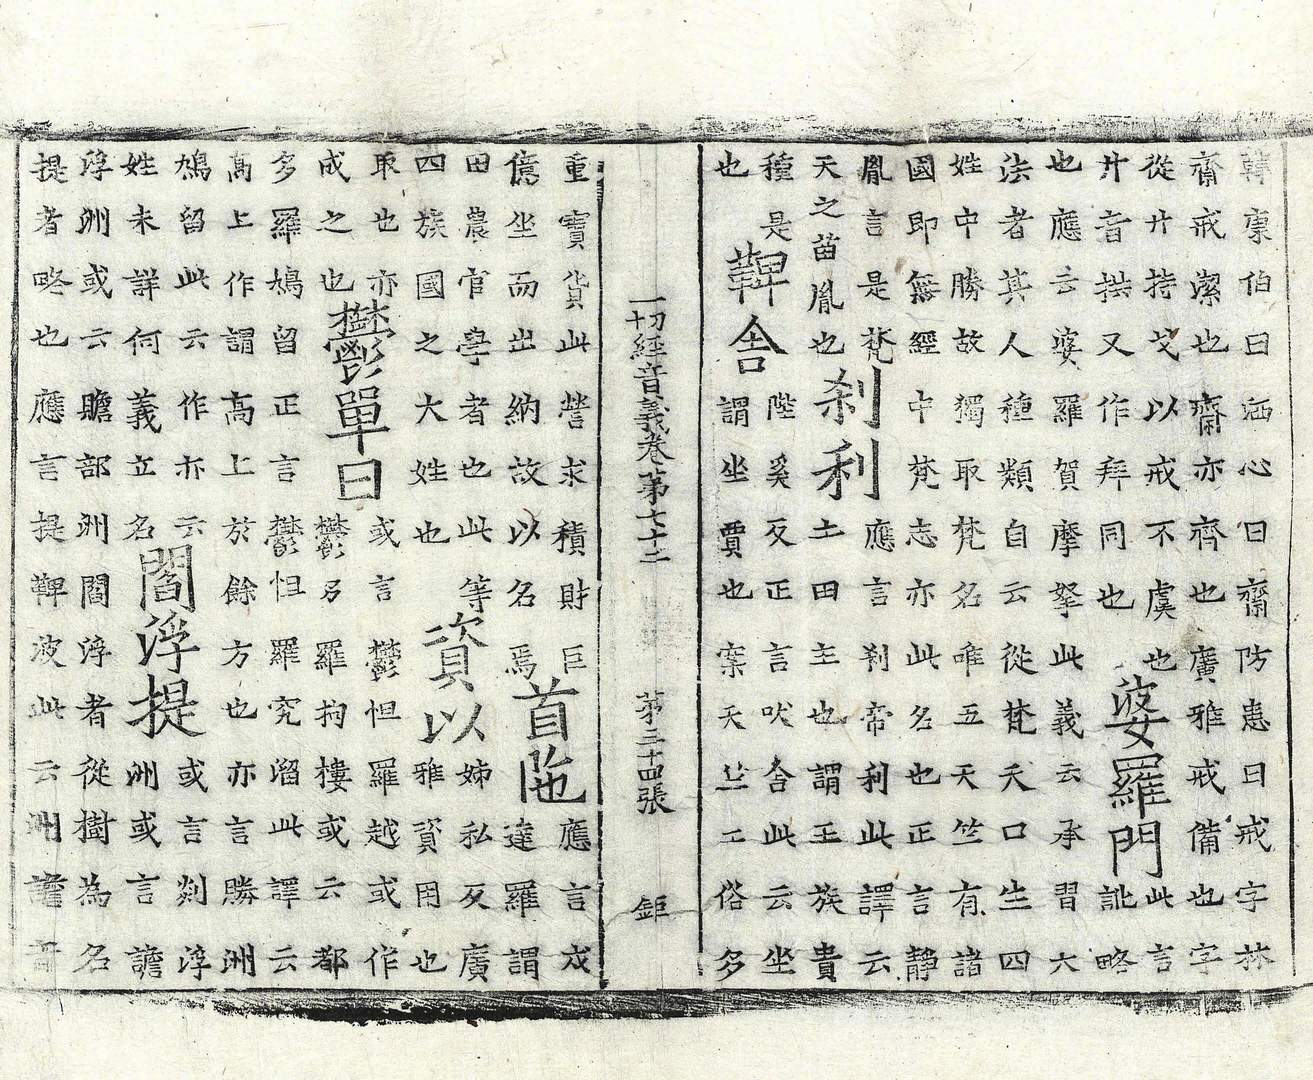 韓康伯曰洒心曰齋防患曰戒字林
齋戒潔也齋亦齊也廣雅戒備也字
從廾持戈以戒不虞也
廾音拱又作拜同也
婆羅門
此言
訛略
也應云婆羅賀摩拏此義云承習大
法者其人種類自云從梵天口生四
姓中勝故獨取梵名唯五天竺有諸
國即無經中梵志亦此名也正言靜
胤言是梵
天之苗胤也
刹利
應言刹帝利此譯云
土田主也謂王族貴
種是
也
鞞舍
陛奚反正言吠舍此云坐
謂坐賈也案天竺土俗多
一切經音義卷第七十二 第三十四張 鉅
重寶貨此營求積財巨
億坐而出納故以名焉
首陁
應言戍
達羅謂
田農官學者也此等
四族國之大姓也
資以
姊私反廣
雅資用也
取也亦
成之也
鬱單曰
或言鬱怛羅越或作
鬱弓羅拘樓或云都
多羅鳩留正言鬱怛羅究溜此譯云
高上作謂高上於餘方也亦言勝洲
鳩留此云作亦云
姓未詳何義立名
閻浮提
或言剡浮
洲或言譫
浮洲或云贍部洲閻浮者從樹為名
提者略也應言提鞞波此云洲譫音